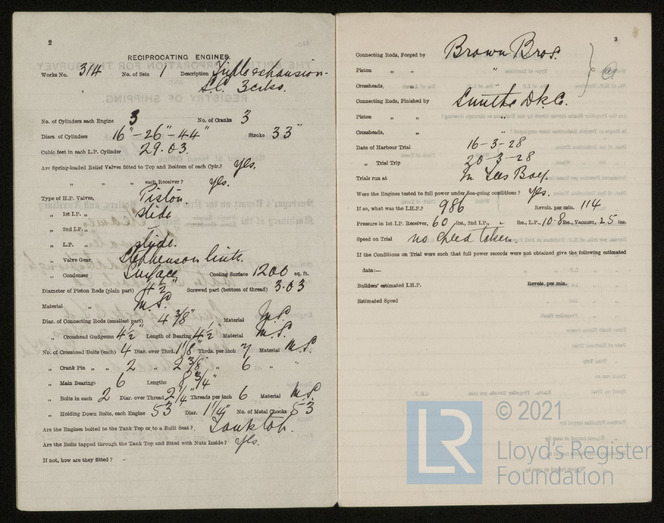 2
RECIPROCATING ENGINES.
Works No. 314 No. of Sets 1 Description Triple expansion
S.C. 3 cranks.
No. of Cylinders each Engine 3 No. of Cranks 3
Diars. of Cylinders 16"-26"-44" Stroke 33"
Cubic feet in each L.P. Cylinder 29.03
Are Spring-loaded Relief Valves fitted to Top and Bottom of each Cylr.? Yes.
„ „ each Receiver? Yes.
Type of H.P. Valves, Piston
„ 1st I.P. „ Slide
„ 2nd I.P. „
„ L.P. „ Slide.
„ Valve Gear Stephenson link.
„ Condenser Surface Cooling Surface 1200 sq. ft.
Diameter of Piston Rods (plain part) 4½" Screwed part (bottom of thread) 3.03
Material M.S.
Diar. of Connecting Rods (smallest part) 4 3/8" Material M.S.
„ Crosshead Gudgeons 4½" Length of Bearing 4½" Material M.S.
No. of Crosshead Bolts (each) 4 Diar. over Thrd. 1 7/8" Thrds. per inch 7 Material M.S.
„ Crank Pin „ „ 2 „ 2 3/8" „ 6 „ „
„ Main Bearings 6 Lengths 8 3/4"
„ Bolts in each 2 Diar. over Thread 2¼" Threads per inch 6 Material M.S.
„ Holding Down Bolts, each Engine 53 Diar. 1¼" No. of Metal Chocks 53
Are the Engines bolted to the Tank Top or to a Built Seat? Tank top.
Are the Bolts tapped through the Tank Top and fitted with Nuts Inside? Yes.
If not, how are they fitted? -
3
Connecting Rods, Forged by Brown Bros.
Piston „ „ „
Crossheads, „
Connecting Rods, Finished by
Piston „ „ „
Crossheads, „ „
Date of Harbour Trial 16-3-28
„ Trial Trip 20-3-28
Trials run at In Tees Bay
Were the Engines tested to full power under Sea-going conditions? Yes.
If so, what was the I.H.P.? 986 Revols. per min. 114
Pressure in 1st I.P. Receiver, 60 lbs., 2nd I.P., lbs., L.P., 10.8 lbs., Vacuum, 25 ins.
Speed on Trial no speed taken.
If the Conditions on Trial were such that full power records were not obtained give the following estimated
data:—
Builders' estimated I.H.P. Revols. per min.
Estimated Speed
© 2021
LR
Lloyd's Register
Foundation